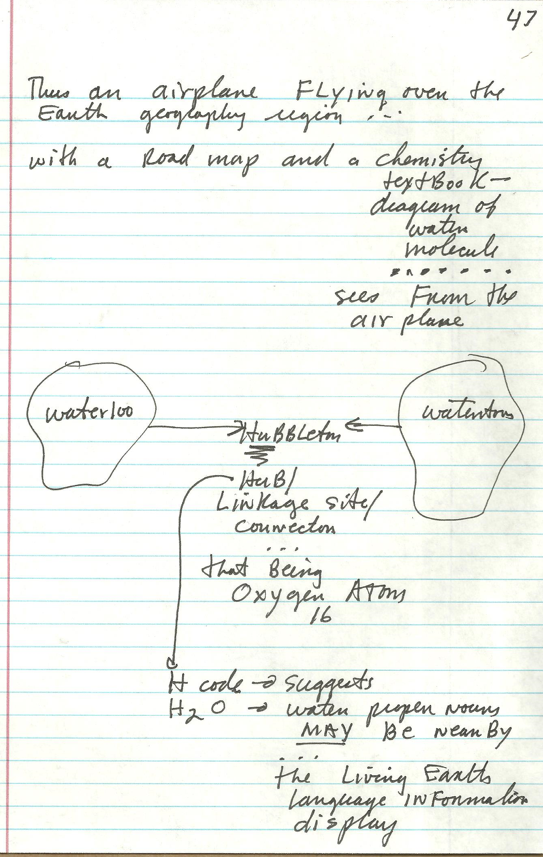 47
Thus an airplane FLying over the
Earth geography region ...
with a Road map and a chemistry
textBook—
diagram of
water
molecule
.......
sees From the
airplane
waterloo
HuBBleton
watertown
HuB/
Linkage site/
connector
...
that Being
Oxygen Atom
16
H code → suggests
H2O → water proper nouns
MAY Be nearBy
...
the Living Earth
language INFormation
display